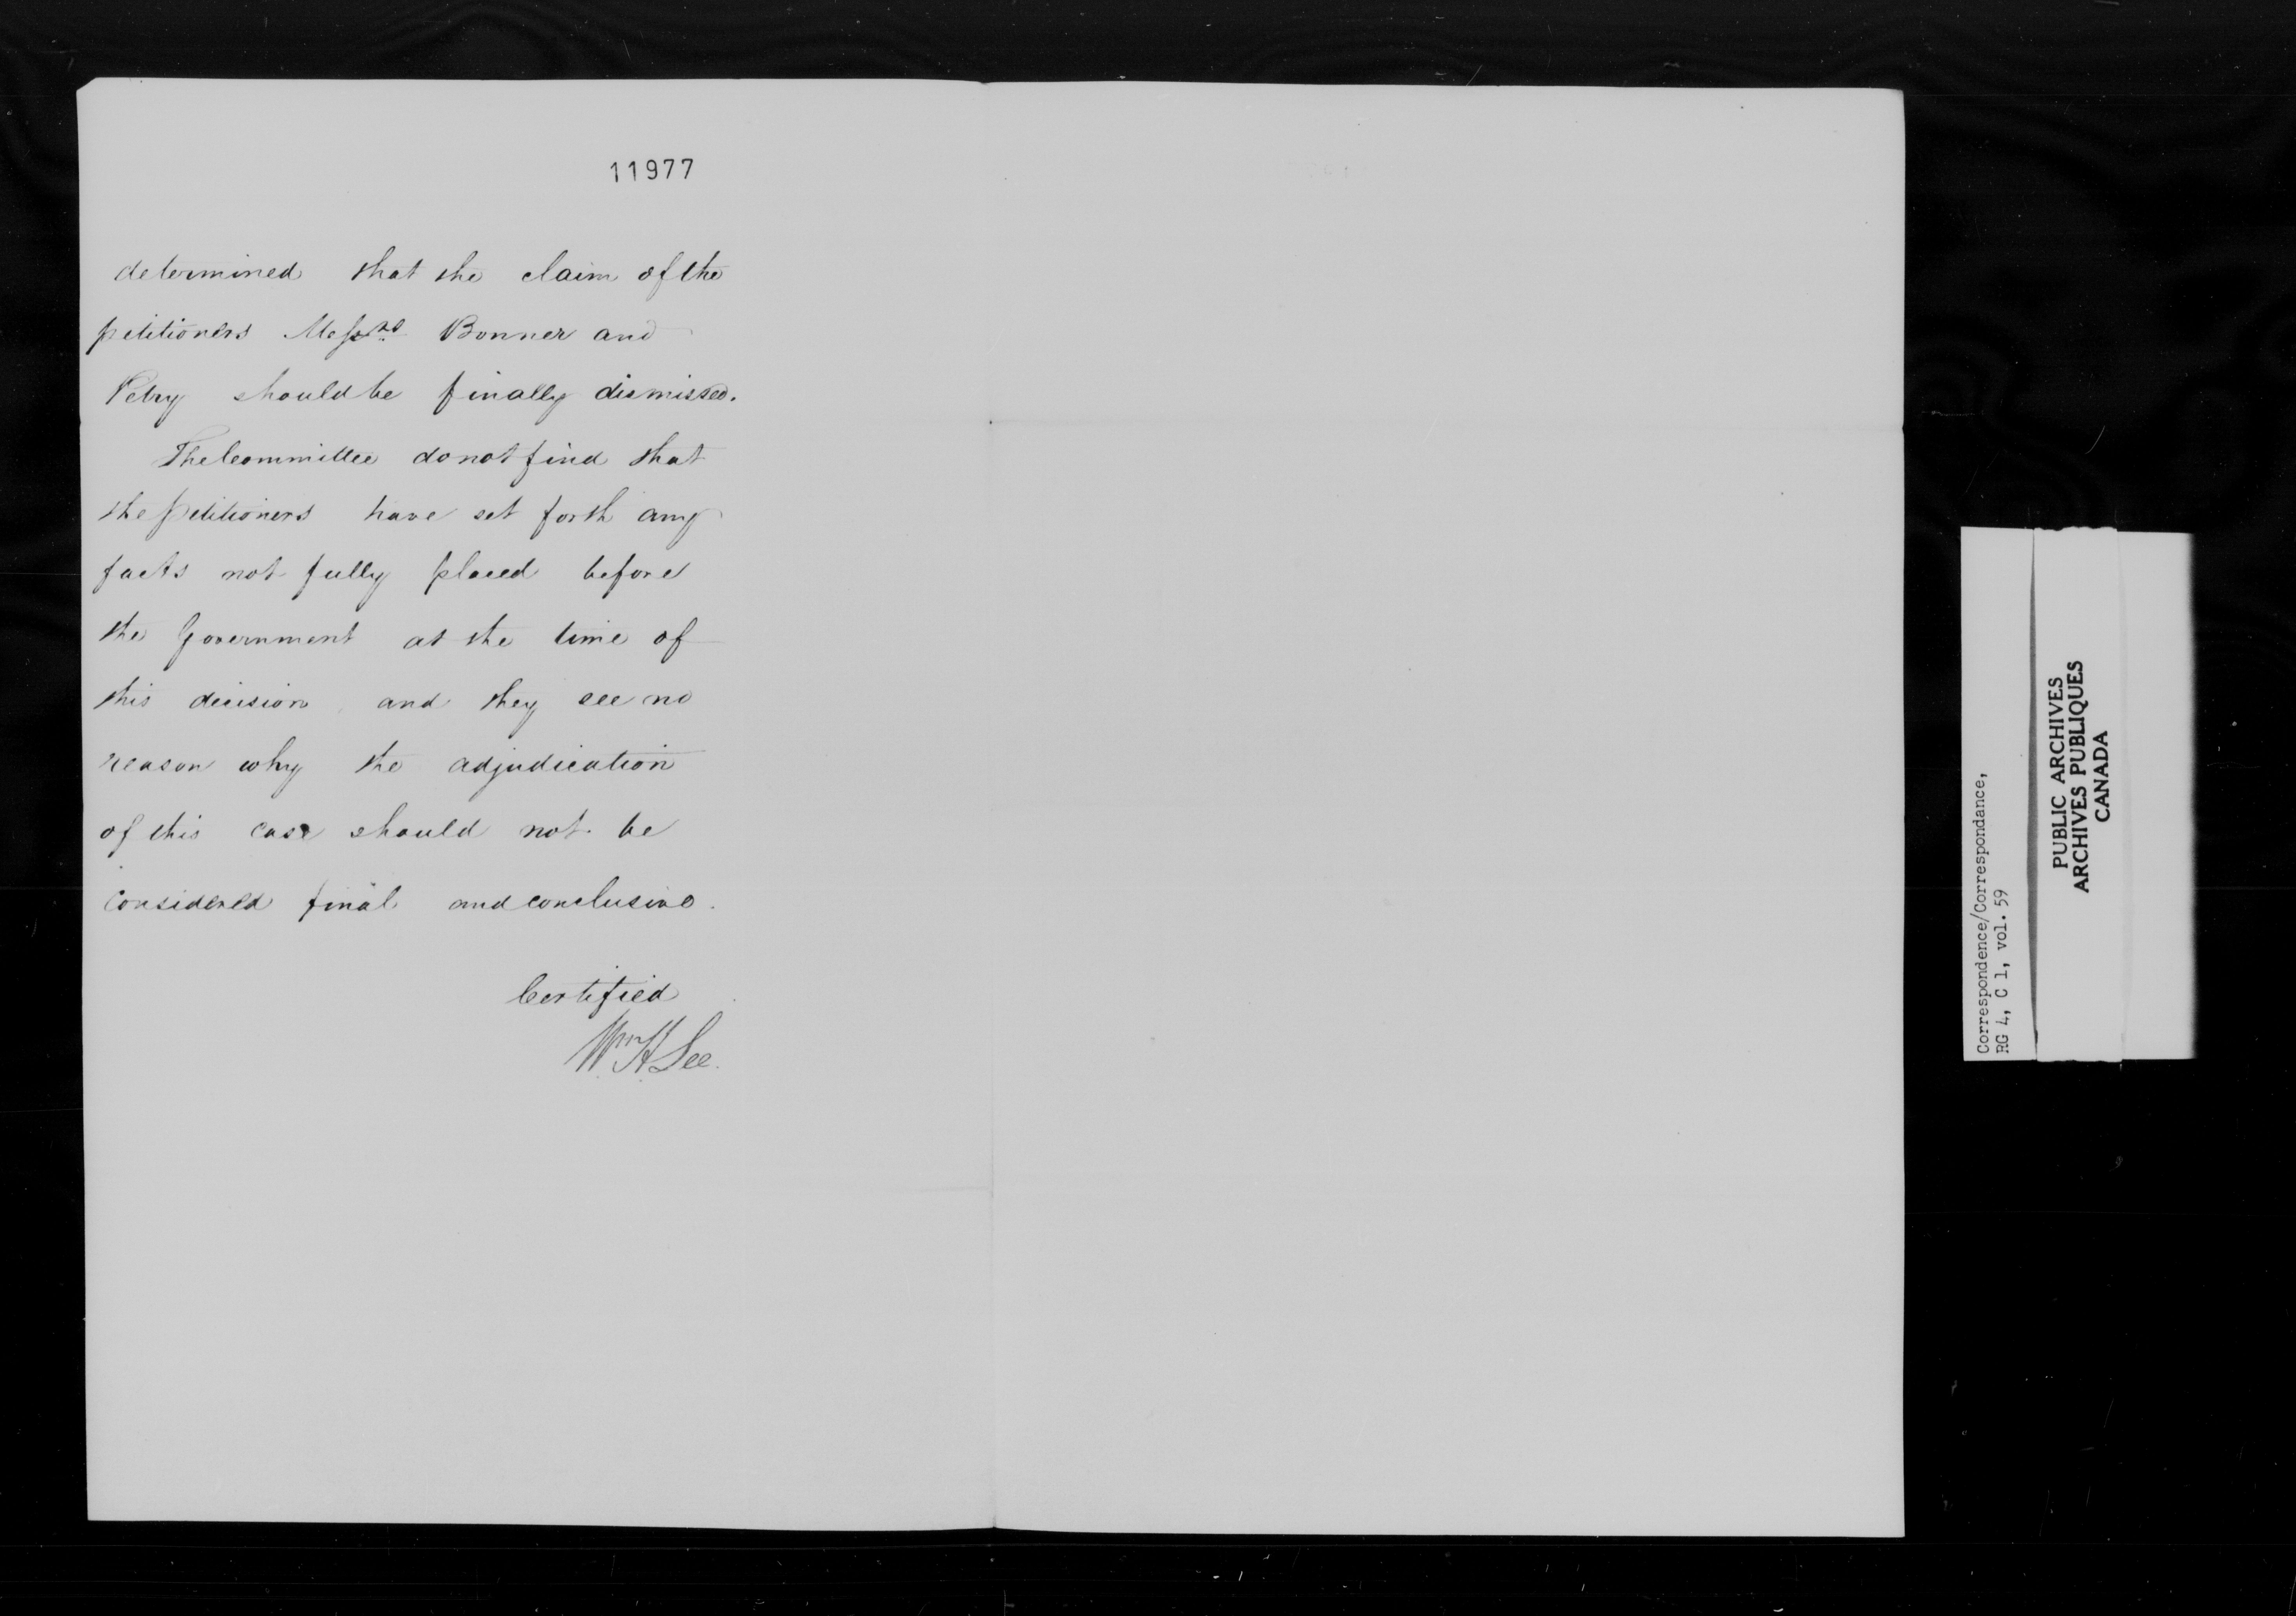 11977
determined that the claim of the
petitioners Messrs Bonner and
Petry should be finally dismissed.
The Committee do not find that
the petitioners have set forth any
facts not fully placed before
the Government at the time of
this decision, and they see no
reason why the adjudication
of this case should not be
considered final and conclusive.
Certified
Wm H Lee.
Correspondence/Correspondance,
RG 4, C 1, vol. 59
PUBLIC ARCHIVES
ARCHIVES PUBLIQUES
CANADA